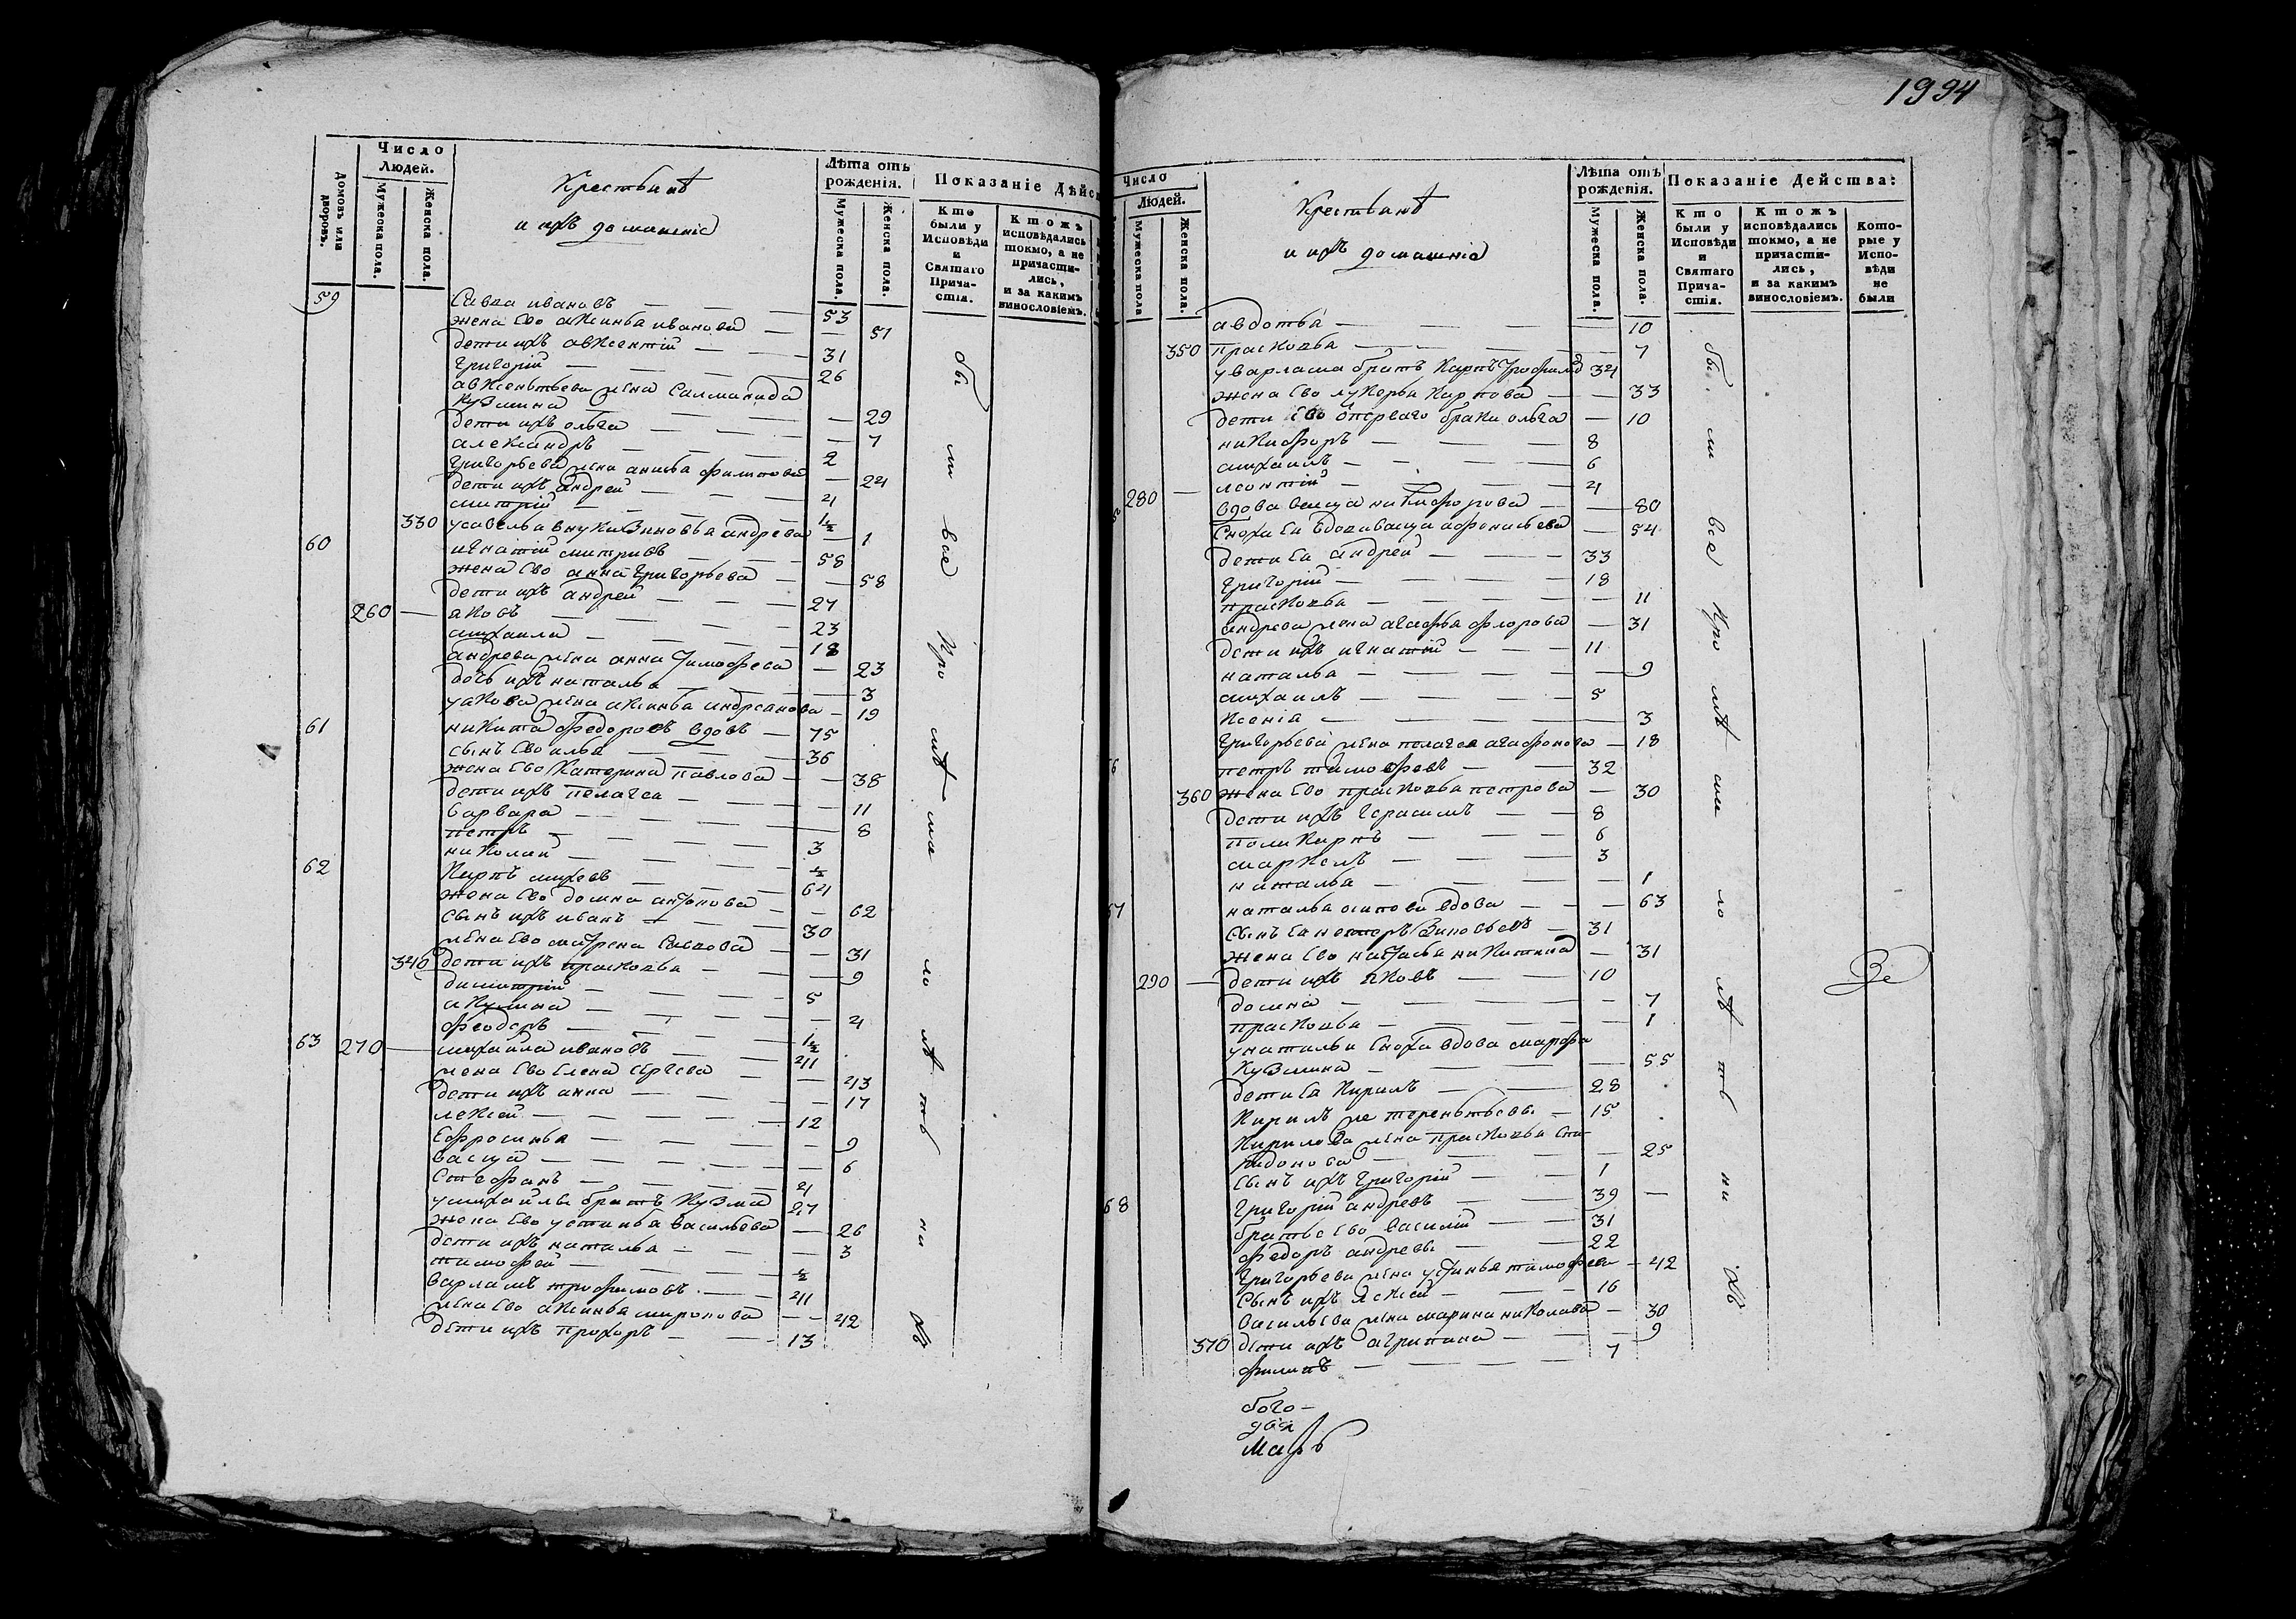 1994
Число
Людей.
Домовъ или дворовъ.
Мужеска пола.
Женска пола.
Крестьянѣ
и ихъ домашніе
Лѣта отъ
рожденія.
Мужеска пола.
Женска пола.
Показаніе Дѣйс
Кто были у Исповѣди и Святаго Причастія.
Ктожъ исповѣдались токмо, а не причастились, и за какимъ винословіемъ.
59 Савва ивановъ 53
жена ево аксинья иванова 51
дети ихъ авксентій 31
григорій 26
авксеньтьева жена Саламанида
кузмина 29
дети ихъ ольга 7
александръ 2
григорьева жена анисья филипова 24
дети ихъ андрей 4
митрій 1½
330 усавелья внука Зиновья андрева 1
60 игнатій митривъ 58
жена ево анна григорьева 58
дети ихъ андрей 27
260 яковъ 23
михаила 18
андрева жена анна тимофева 23
дочь ихъ наталья 3
якова жена аксинья андреанова 19
61 никита федоровъ вдовъ 75
сынъ ево илья 36
жена ево катерина павлова 38
дети ихъ пелагея 11
варвара 8
петръ 3
николай ½
62 Карпъ михеевъ 64
жена ево домна антонова 62
сынъ ихъ иванъ 30
жена ево матрена Саввова 31
340 дети ихъ прасковья 9
димитрій 5
акулина 4
феодоръ 1½
63 270 михайла ивановъ 41
жена ево елена сергева 43
дети ихъ анна 17
лексей 12
Ефросинья 9
васса 6
Стефанъ 4
умихайлы братъ Кузма 27
жена ево устинья васильева 26
дети ихъ наталья 3
тимофей ½
варламъ трофимовъ 41
жена ево аксинья миронова 42
дети ихъ прохоръ 13
бы ли все Кро мѣ ма ло лѣ тъ ни хъ
Число
Людей.
Мужеска пола
Женска пола.
Крестьянѣ
и ихъ домашніе
Лѣта отъ
рожденія.
Мужеска пола.
Женска пола.
Показаніе Действа:
Кто были у Исповѣди и Святаго Причастія.
Ктожъ исповѣдались токмо, а не причастились, и за какимъ винословіемъ.
Которые у Исповѣди не были
авдотья 10
350 прасковья 7
уварлама братъ Карпъ трофимовъ 34
жена ево лукерья Карпова 33
дети ево отперваго брака ольга 10
никифоръ 8
михаилъ 6
280 леонтій 4
вдова васса никифорова 80
сноха ея вдова васса афонасьева 54
дети ея андрей 33
григорій 18
прасковья 11
андрева жена агафья флорова 31
дети ихъ игнатій 11
наталья 9
михаилъ 5
Ксенія 3
григорьева жена пелагея агафонова 18
66 петръ тимофевъ 32
360 жена ево прасковья петрова 30
дети ихъ герасимъ 8
поликарпъ 6
маркелъ 3
наталья 1
67 наталья осипова вдова 63
сынъ ея петръ Зиновьевъ 31
жена ево настасья никитина 31
290 дети ихъ яковъ 10
домна 7
прасковья 1
унатальи сноха вдова марфа
Кузмина 55
дети ея Кирилъ 28
Кирилъ же тереньтьевы 15
Кирилова жена прасковья спи-
ридонова 25
сынъ ихъ григорій 1
68 григорій андревъ 39
братья ево василій 31
федоръ андревы 22
григорьева жена устинья тимофева 42
сынъ ихъ лексей 16
васильева жена марина николава 30
370 дети ихъ агрипина 9
филипъ 7
бы ли все Кро мѣ ма ло лѣ тъ ни хъ